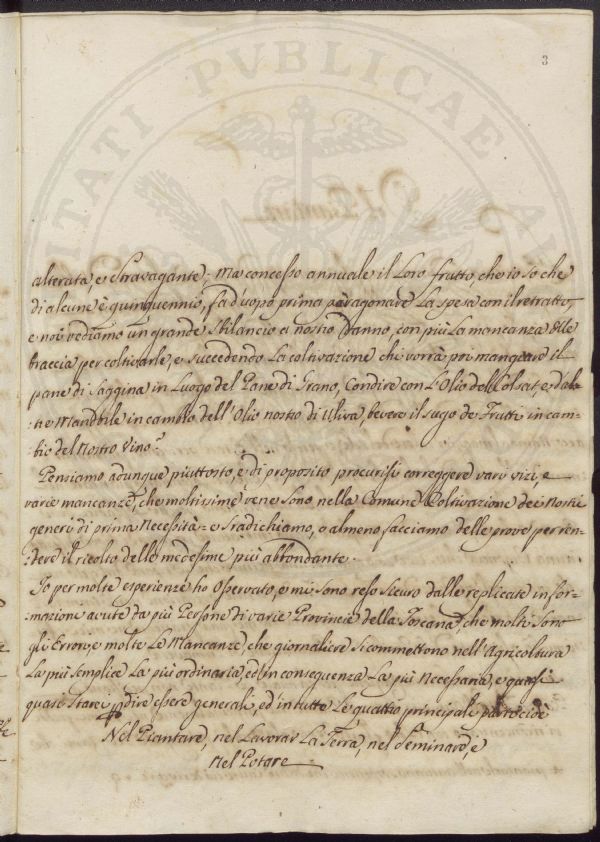 3
alterata, e Stravagante; Ma concesso annuale il Loro frutto, che io so che
di alcune è quinquennio, fà d'uopo prima paragonare La spesa con il retratto,
e noi vediamo un grande Sbilancio a nostro Danno, con più La mancanza delle
braccia per coltivarle, e succedendo La coltivazione chi vorrà poi mangiare il
pane di Saggina in Luogo del Pane di Grano, Condire con L'Olio dell
tre Mandorle in cambio dell'Olio nostro di Uliva, bevere il sugo de Frutti in cam-
:bio del Nostro Vino?
Pensiamo adunque piuttosto, e di proposito procurisi correggere varj vizi, e
varie mancanze, che moltissime ve ne sono nella Comune Coltivazione dei Nostri
generi di prima Necessità: e Sradichiamo, o almeno facciamo delle prove per ren-
:dere il ricolto delle medesime più abbondante.
Io per molte esperienze ho Osservato, e mi sono reso Sicuro dalle replicate infor-
:mazioni avute da più Persone di varie Provincie della Toscana, che molti Sono
gli Errori, e molte Le Mancanze, che giornaliere Si commettono nell'Agricoltura
La più Semplice La più ordinaria, ed in conseguenza La più Necessaria, e quasi
quasi Starei per dire essere generali, ed in tutte Le quattro principali parti cioè
Nel Piantare, nel Lavorar La Terra, nel Seminare, e
Nel Potare
PVBLICAE